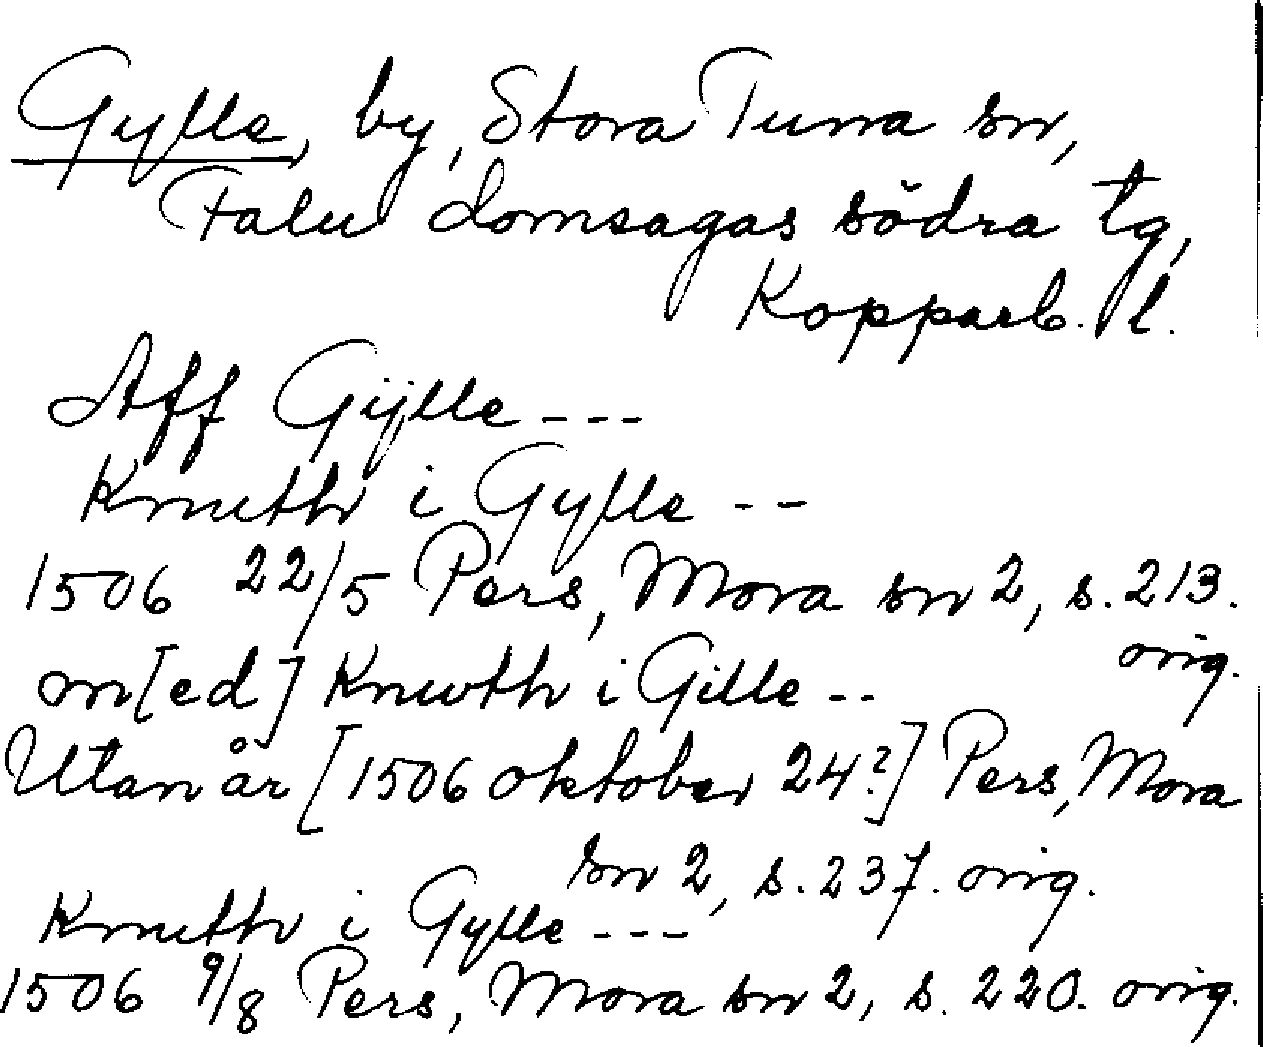 Gylle, by, Stora Tuna sn,
Falu domsagas södra tg,
Kopparb. l.
Aff Gijlle ---
Knuth i Gylle --
1506 22/5 Pers, Mora sn 2, s. 213.
orig.
m[ed] Knwth i Gille --
Utan år [1506 oktober 24?] Pers, Mora
sn 2, s. 237. orig.
Knuth i Gylle ---
1506 9/8 Pers, Mora sn 2, s. 220. orig.